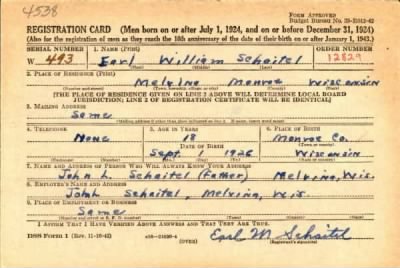 4538
FORM APPROVED
REGISTRATION CARD (Men born on or after July 1, 1924, and on or before December 31, 1924)
(Also for the registration of men as they reach the 18th anniversary of the date of their birth on or after January 1, 1943.)
SERIAL NUMBER 1. NAME (Print) ORDER NUMBER
W 493 Earl William Schaitel 12829
2. PLACE OF RESIDENCE (Print)
Melvina Monroe Wisconsin
[THE PLACE OF RESIDENCE GIVEN ON LINE 2 ABOVE WILL DETERMINE LOCAL BOARD
JURISDICTION; LINE 2 OF REGISTRATION CERTIFICATE WILL BE IDENTICAL]
3. MAILING ADDRESS
Same
4. TELEPHONE 5. AGE IN YEARS 6. PLACE OF BIRTH
None 18 Monroe Co.
DATE OF BIRTH
Sept. 1 1926 Wisconsin
7. NAME AND ADDRESS OF PERSON WHO WILL ALWAYS KNOW YOUR ADDRESS
John L. Schaitel (Father) Melvina, Wis.
8. EMPLOYER'S NAME AND ADDRESS
John Schaitel, Melvina, Wis
9. PLACE OF EMPLOYMENT OR BUSINESS
Same
I AFFIRM THAT I HAVE VERIFIED ABOVE ANSWERS AND THAT THEY ARE TRUE.
DSS Form 1 (OVER) Earl W Schaitel
(Registrant's signature)